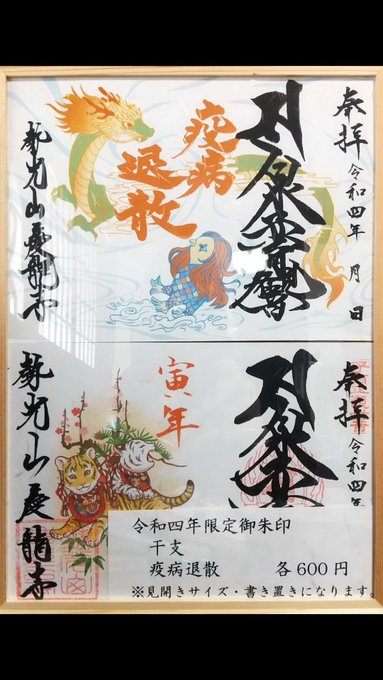 奉拝
令和四年 月 日
疫病
退散
勢光山慶龍寺
奉拝
令和四年
寅年
勢光山慶龍寺
令和四年限定御朱印
干支
疫病退散 各600円
※見開きサイズ・書き置きになります。